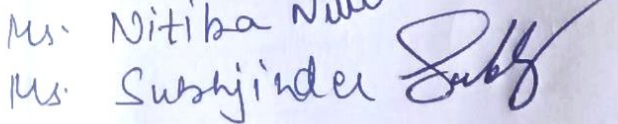 Ms. Nitika
Ms. Subhjinder